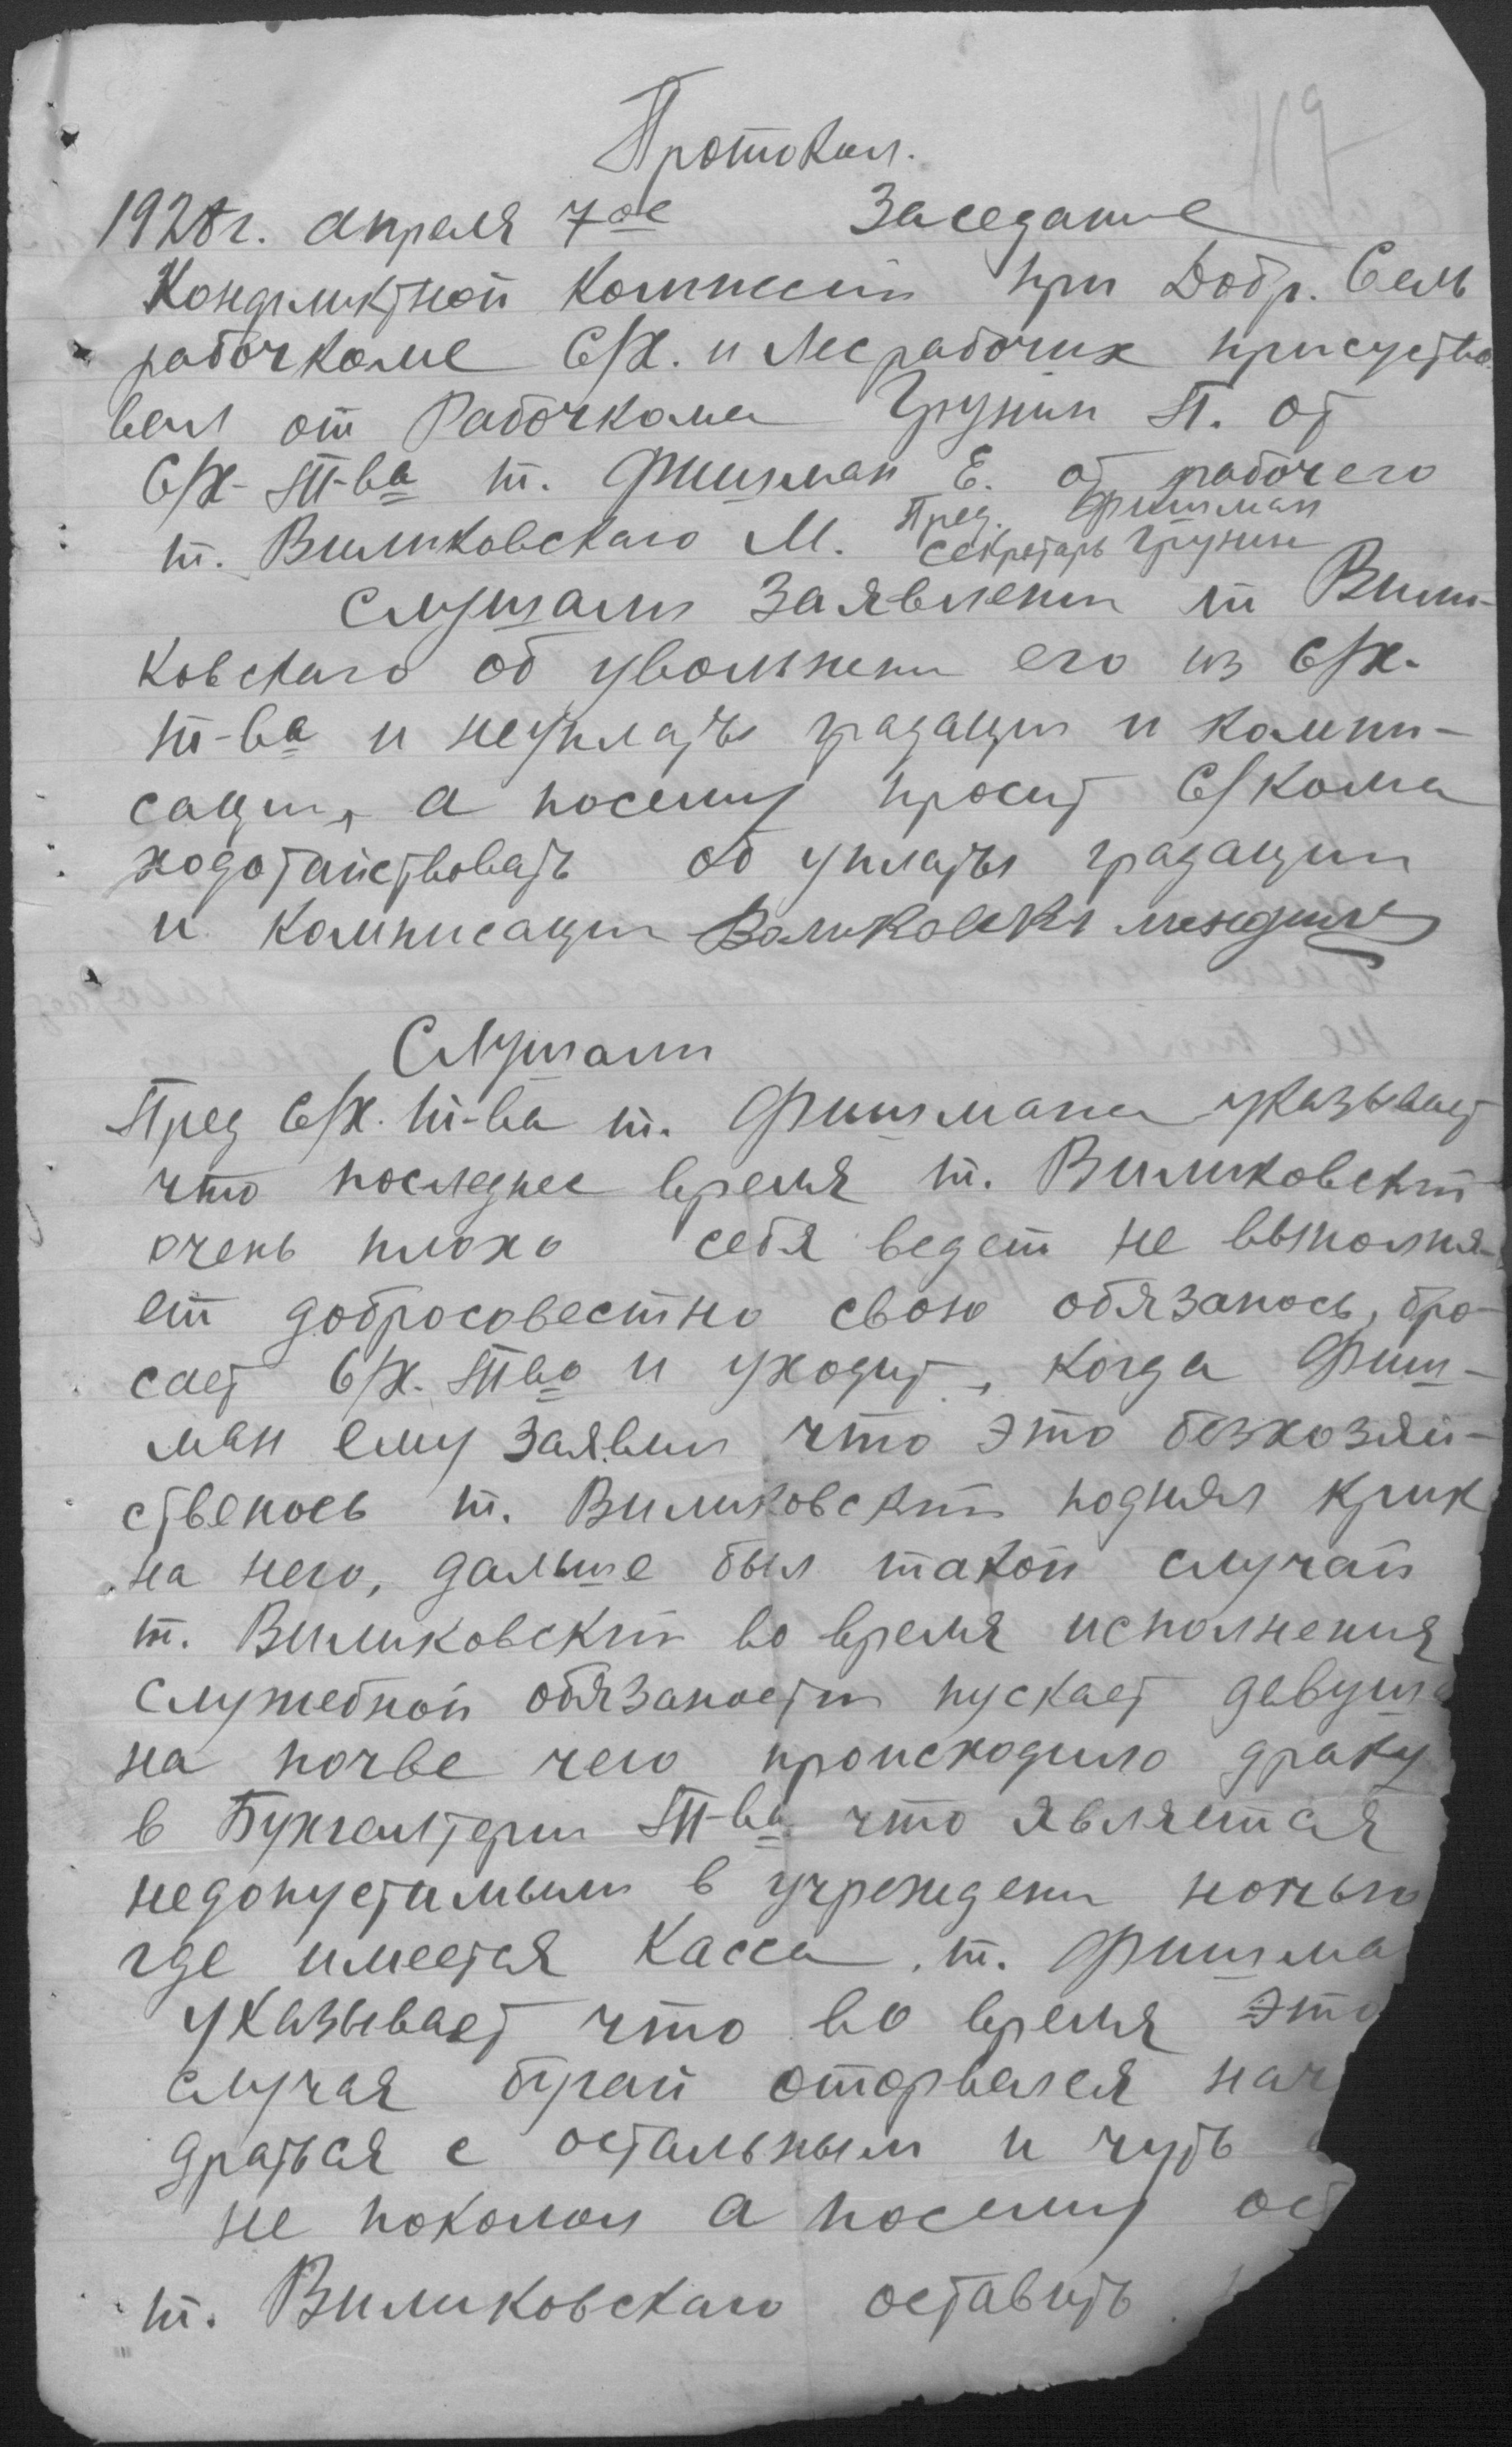 119
Протокол.
1928г. апреля 7ое Заседание
Кондликтной Комисии при Добр. Сель
рабочкоме С/Х. и Лесрабочих присуство
вал от Рабочкома Грунин П. от
С/Х-Т-ва т. Фишман Е. от рабочего
т. Виликовскаго М. Пред. Фишман
Секретарь Грунин
Слушали Заявлени т Вили-
ковскаго об увольнени его из С/Х.
т-ва и неуплаты градации и компи-
сации, а посему просит С/Кома
ходотайствовать об уплаты градации
и комписации Валиковски мендиле
Слушали
Пред С/Х. т-ва т. Фишмана указывает
что последнее время т. Виликовский
очень плохо себя ведет не выполня-
ет добросовестно свою обязанось, бро-
сает С/Х. Тво и уходит, когда Фиш-
ман ему заявил что это безхозяй-
ственось т. Виликовский поднял крик
на него, дальше был такой случай
т. Виликовский во время исполнения
служебной обязаности пускает девуш
на почве чего происходило драку
в Бухгалтерии Т-ва что является
недопустимым в учреждени ночью
где имеется Касса. т. Фишма
указывает что во время это
случая бугай оторвался нач
драться с остальным и чуть
не поколол а посему ост
т. Виликовскаго оставить